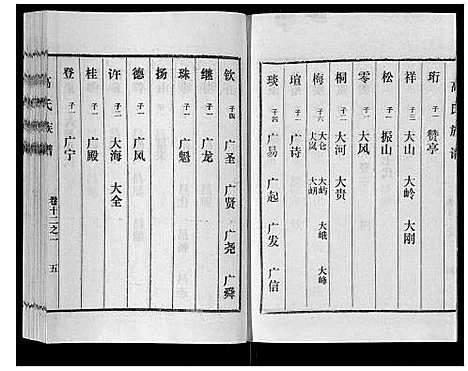 高氏族谱
珩 子一 赞亭
祥 子三 大山 大岭 大刚
松 子一 振山
零 子一 大风
桐 子二 大河 大贵
梅 子六 大仑 大屿 大峨 大峰
大岚 大峒
瑄 子一 广诗
琰 子四 广易 广起 广发 广信
钦 子四 广圣 广贤 广尧 广舜
继 子一 广龙
珠 子一 广魁
扬
德 子一 广风
许 子二 大海 大全
桂 子一 广殿
登 子一 广宁
高氏族谱 卷十二之一 五